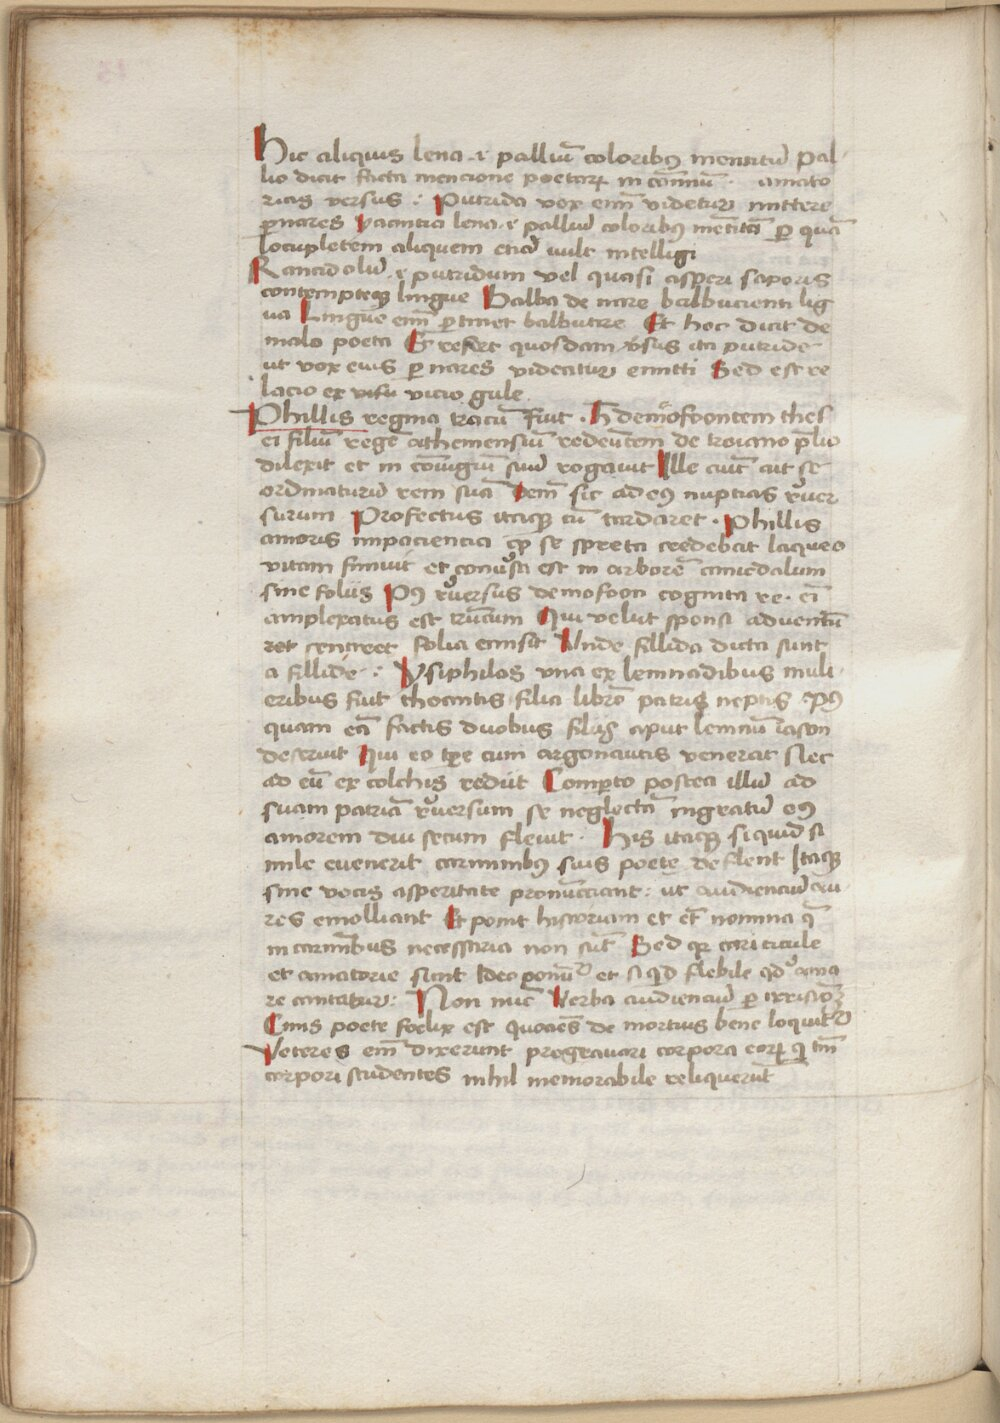 Hic aliquis lena .i. palliū coloribꝰ mentitū Pal
lio dicit facta mencione poetarꝝ in cōmuni · amato
rias versus : Putrida vox enī videtur mittere
ꝑ nares vacantia lena .i. palliū coloribꝰ mētitā ꝑ quā
locupletem aliquem eciā vult intelligi
Rancidolū .i. putridum vel quasi asperi saporis
contempteqꝫ lingue Balba de nare balbucienti lig
ua Lingue enī ꝑtinet balbutire Et hoc dicit de
malo poeta Et refert quosdam vsus ita putride
ut vox eius ꝑ nares videatur emitti Sed est re
lacio ex visu vicio gule
Phillis regina tracū fuit · h demofoontem thes
ei filiū rege atheniensiū redeūtem de troiano p̄lio
dilexit et in cōiugiū suū rogauit Ille ciuit ait se
ordinaturū rem suā Item sic ad eiꝰ nuptias reuer
surum Profectus itaqꝫ cū tardaret · Phillis
amoris impaciencia qꝫ se spreta credebat laqueo
vitam finiuit et conuersa est in arborē amicdalum
sine foliis Pꝰ reuersus demofoon cognita re · eī
amplexatus est truncum Qui velut sponsi aduentū
sentiret folia emisit Unde fillida dicta sunt
a fillide : Ysiphilas vna ex lemnadibus muli
eribus fuit thoantis filia liberi patris neptis · Pꝰ
quam eā factis duobus filiis aput lemnū iason
deseruit Qui eo tꝑe cum argonautis venerat Nec
ad eū ex colchis rediit Comꝑto postea illū ad
suam patriā reuersum se neglectā ingratū eiꝰ
amorem diu secum fleuit · His itaqꝫ si quid si
mile euenerit carminibꝰ suis poete deflent Itaqꝫ
sine vocis asperitate pronuncciant : ut audienciū au
res emolliant Et ponit historiam et et̄ nomina q̄
in carmībus necessaria non sūt Sed qꝛ tari ticule
et amatorie sunt Ideo ponūt et si qd flebile qd ama
re cantatur : Non nūc Verba audienciū ꝑ irrisionē
Cinis poete foelix est quociēs de mortuis bene loquit
Veteres enī dixerunt pregrauari corpora eorꝝ qi tm̄
corpori studentes nihil memorabile reliquerūt